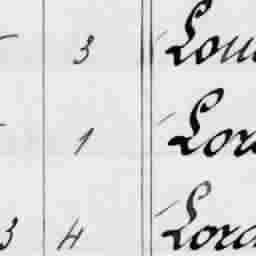 3 Lou
1 Lor
3 4 Lord